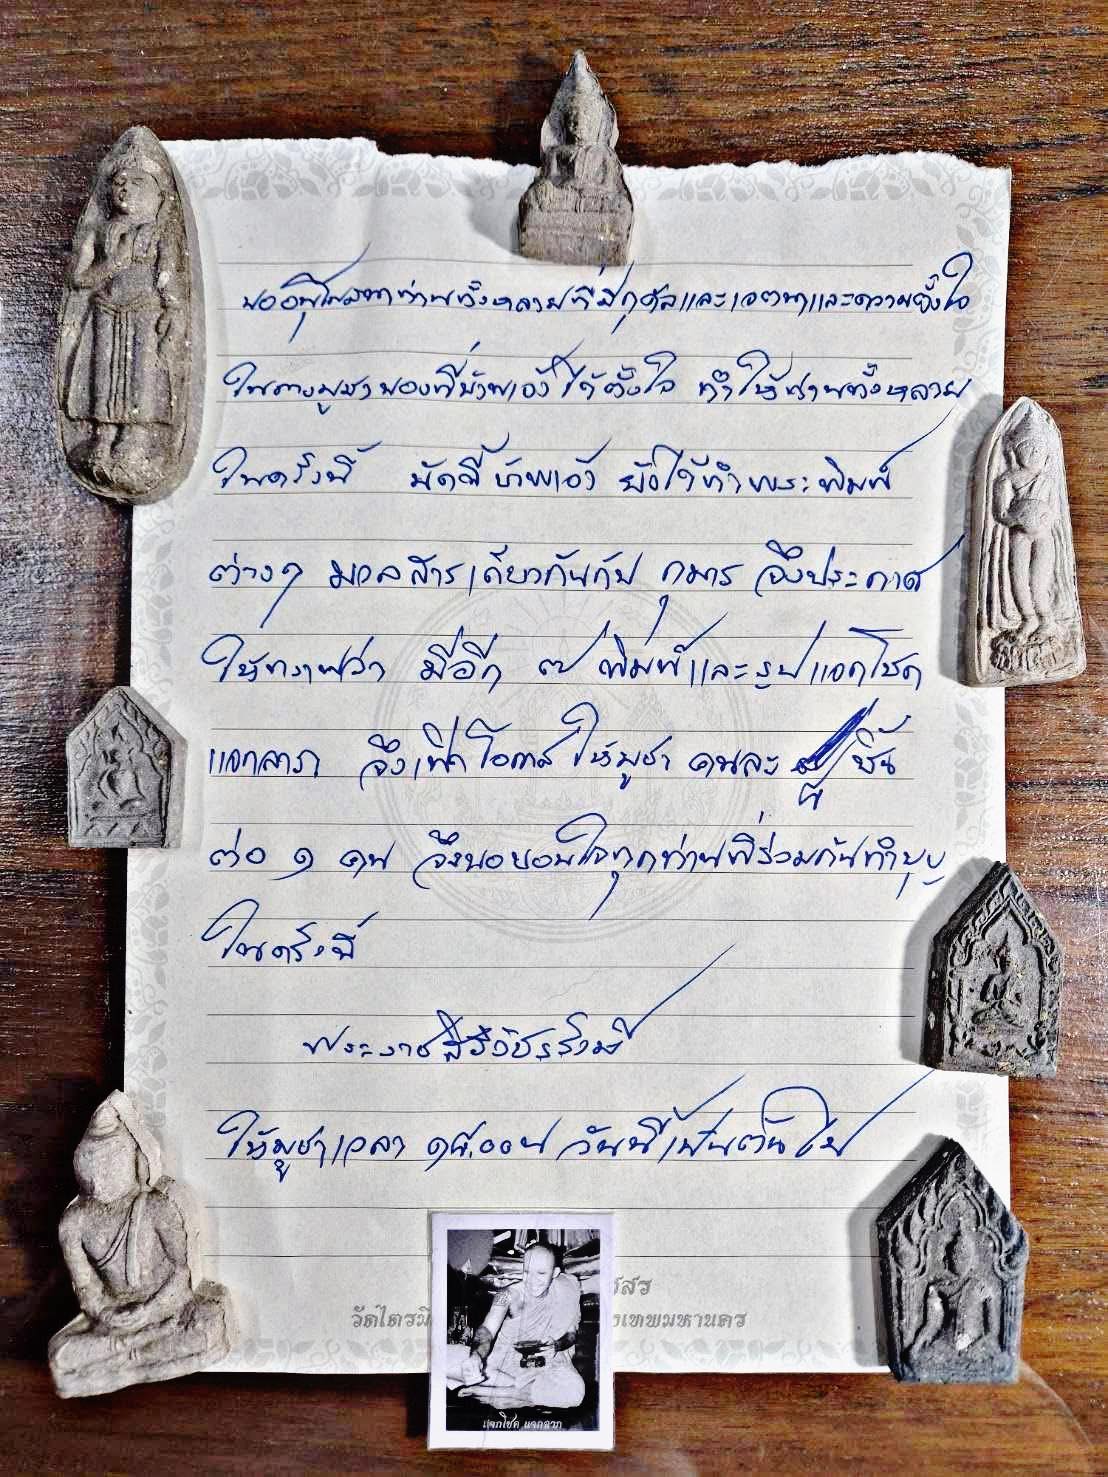 ขออนุโมทนาท่านทั้งหลายที่มีกุศลและเจตนาและความตั้งใจ
ในการบูชาของที่ข้าพเจ้าได้ตั้งใจ ทำให้ท่านทั้งหลาย
ในครั้งนี้ บัดนี้ข้าพเจ้า ยังได้ทำพระพิมพ์
ต่างๆ มวลสารเดียวกันกับ กุมาร จึงประกาศ
ให้ทราบว่า มีอีก ๗ พิมพ์และรูปแจกโชค
แจกลาภ จึงเปิดโอกาส ให้บูชา คนละ ชิ้น
ต่อ ๑ คน จึงขอขอบใจทุกท่านที่ร่วมกันทำบุญ
ในครั้งนี้
พระราชสิริวัชรรังษี
ให้บูชาเวลา ๑๕.๐๐น วันนี้เป็นต้นไป
สร
วัดไตรมิ งเทพมหานคร
แจกโชค แจกลาภ